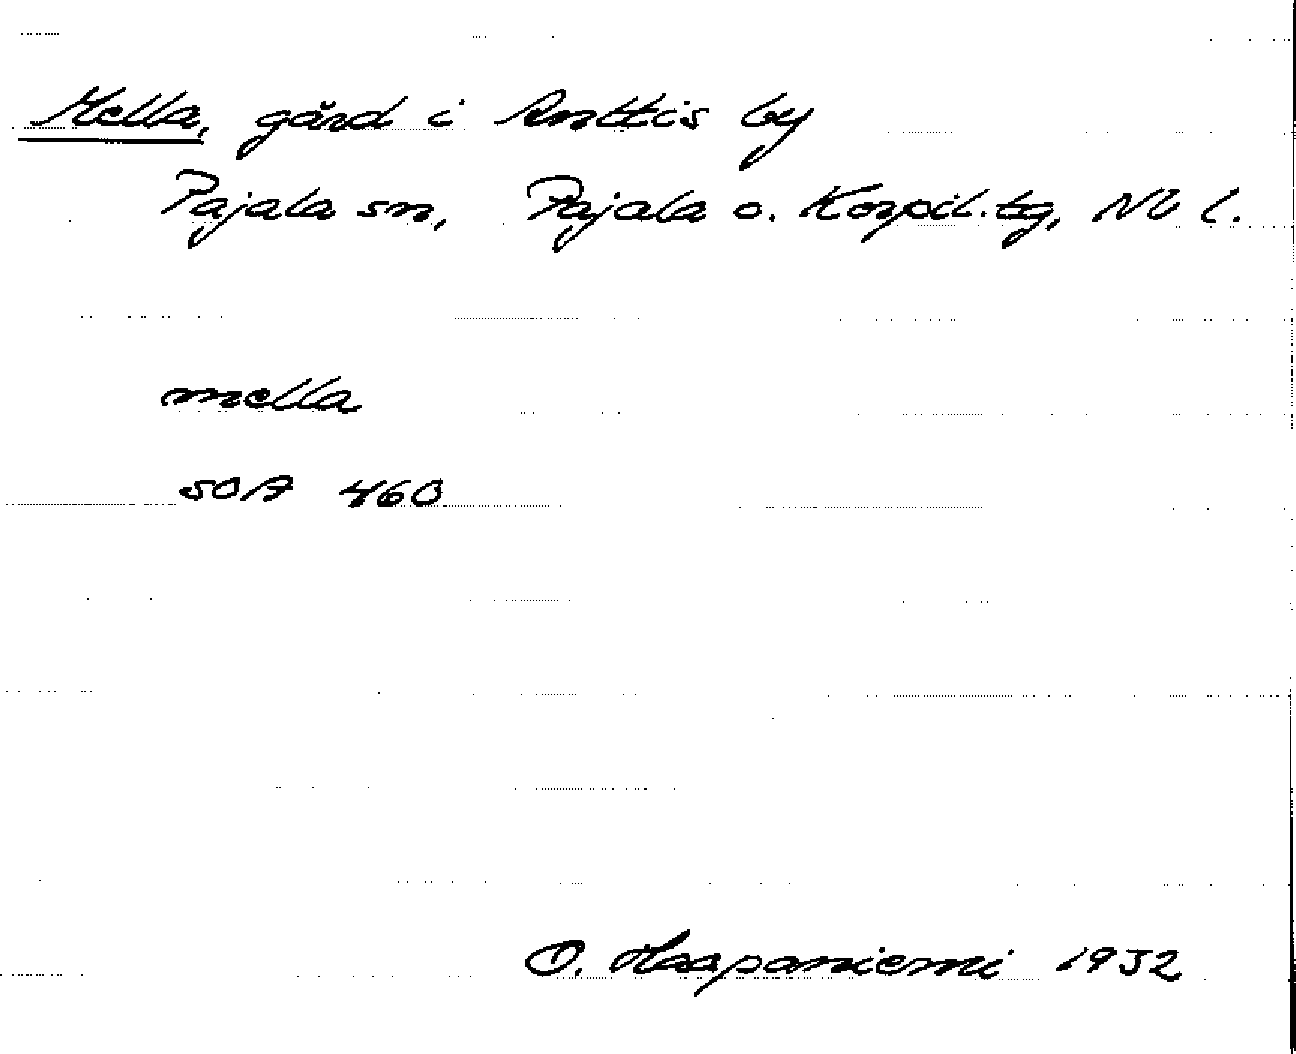 Mella, gård i Anttis by
Pajala sn, Pajala o. Korpil. tg, Nb l.
mella
SOA 460
O. Haapaniemi 1932